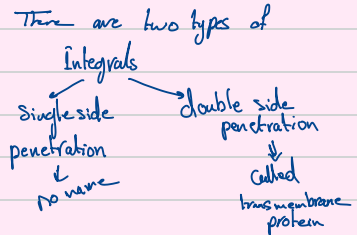 There are two types of
Integrals
Single side
penetration
no name
double side
penetration
Called
transmembrane
protein